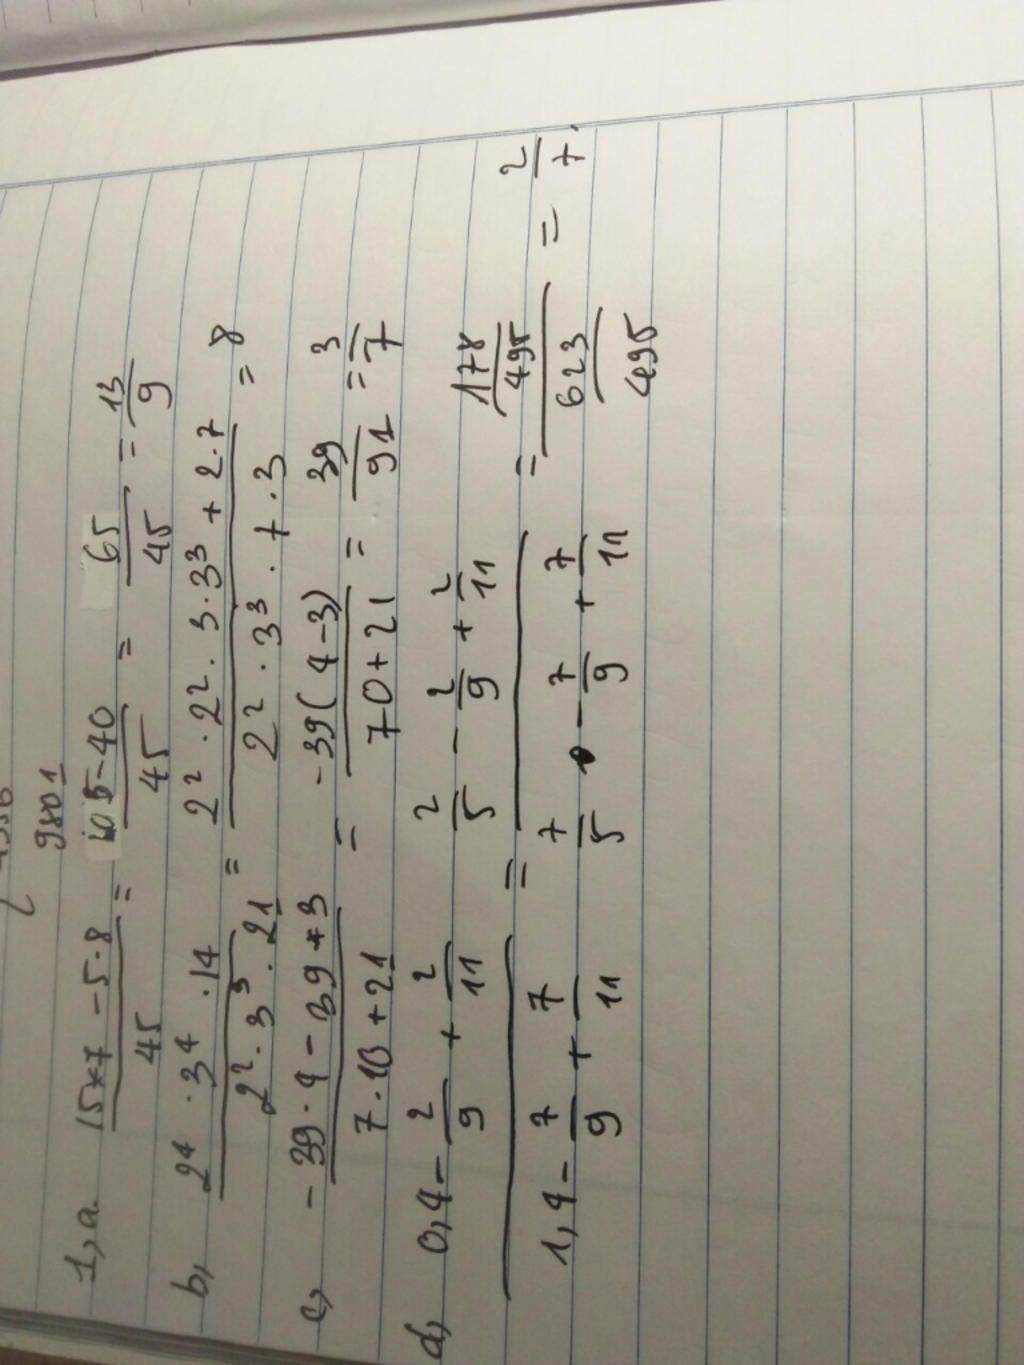 9801
1,a. (15*7 - 5.8)/45 = (105-40)/45 = 65/45 = 13/9
b, (2⁴ . 3⁴ . 14)/(2² . 3³ . 21) = (2² . 2² . 3 . 3³ + 2.7)/(2² . 3³ . 7 . 3) = 8
c, (-39 . 4 - 39 * 3)/(7.10 + 21) = (-39(4-3))/(70+21) = 39/91 = 3/7
d, (0,4 - 2/9 + 2/11)/(1,4 - 7/9 + 7/11) = (2/5 - 2/9 + 2/11)/(7/5 - 7/9 + 7/11) = (178/495)/(623/495) = 2/7.